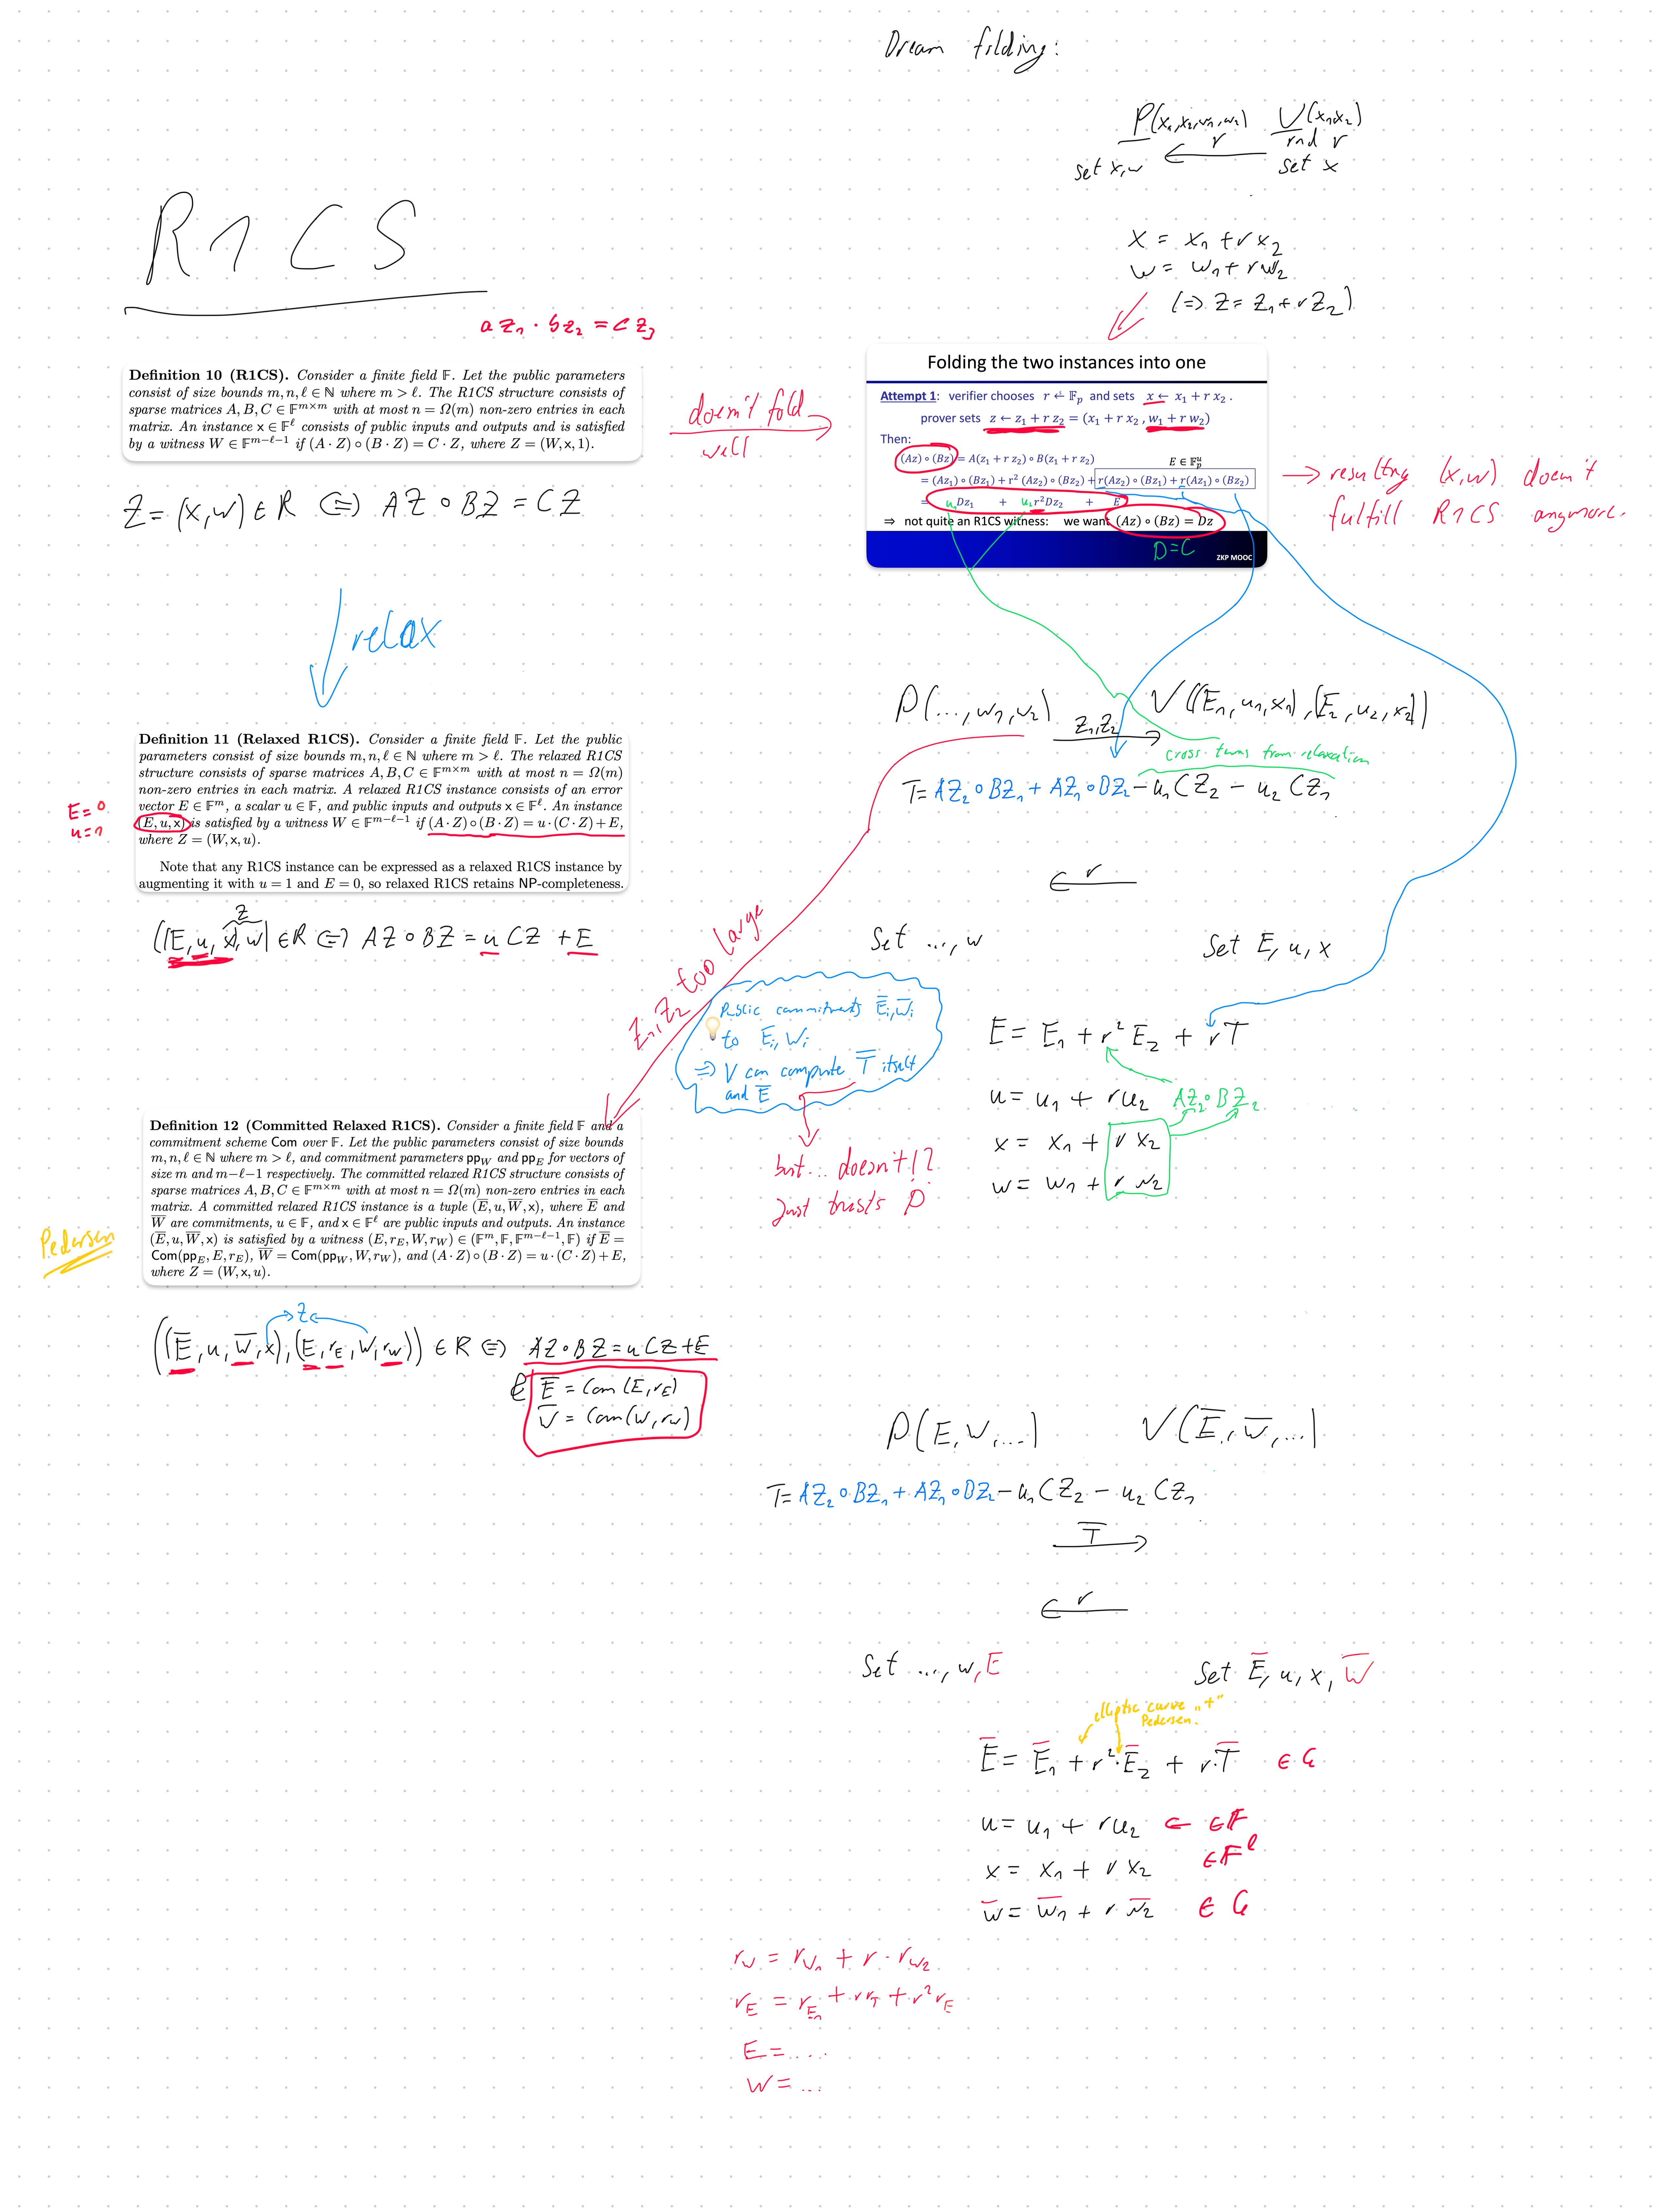 Dream folding:
P(x₁,x₂,w₁,w₂) V(x₁,x₂)
r rnd r
set x,w set x
R1CS
x = x₁ + r x₂
w = w₁ + r w₂
(=> Z = Z₁ + r Z₂)
a z₁ · b z₂ = c z₃
Definition 10 (R1CS). Consider a finite field 𝔽. Let the public parameters
consist of size bounds m, n, ℓ ∈ ℕ where m > ℓ. The R1CS structure consists of
sparse matrices A, B, C ∈ 𝔽^{m×m} with at most n = Ω(m) non-zero entries in each
matrix. An instance x ∈ 𝔽^ℓ consists of public inputs and outputs and is satisfied
by a witness W ∈ 𝔽^{m−ℓ−1} if (A · Z) ∘ (B · Z) = C · Z, where Z = (W, x, 1).
doesn't fold
well
Folding the two instances into one
Attempt 1: verifier chooses r ← 𝔽p and sets x ← x₁ + r x₂ .
prover sets z ← z₁ + r z₂ = (x₁ + r x₂ , w₁ + r w₂)
Then:
(Az) ∘ (Bz) = A(z₁ + r z₂) ∘ B(z₁ + r z₂) E ∈ 𝔽_p^u
= (Az₁) ∘ (Bz₁) + r² (Az₂) ∘ (Bz₂) + r(Az₂) ∘ (Bz₁) + r(Az₁) ∘ (Bz₂)
= u₁ Dz₁ + u₂ r²Dz₂ + E
⇒ not quite an R1CS witness: we want (Az) ∘ (Bz) = Dz
D = C
ZKP MOOC
→ resulting (x,w) doesn't
fulfill R1CS anymore.
Z = (x,w) ∈ R <=> AZ ∘ BZ = CZ
relax
Definition 11 (Relaxed R1CS). Consider a finite field 𝔽. Let the public
parameters consist of size bounds m, n, ℓ ∈ ℕ where m > ℓ. The relaxed R1CS
structure consists of sparse matrices A, B, C ∈ 𝔽^{m×m} with at most n = Ω(m)
non-zero entries in each matrix. A relaxed R1CS instance consists of an error
vector E ∈ 𝔽^m, a scalar u ∈ 𝔽, and public inputs and outputs x ∈ 𝔽^ℓ. An instance
(E, u, x) is satisfied by a witness W ∈ 𝔽^{m−ℓ−1} if (A · Z) ∘ (B · Z) = u · (C · Z) + E,
where Z = (W, x, u).
Note that any R1CS instance can be expressed as a relaxed R1CS instance by
augmenting it with u = 1 and E = 0, so relaxed R1CS retains NP-completeness.
E = 0
u = 1
Z
((E, u, x), w) ∈ R <=> AZ ∘ BZ = u CZ + E
P(..., w₁, w₂) Z₁,Z₂ V((E₁, u₁, x₁), (E₂, u₂, x₂))
cross terms from relaxation
T = AZ₂ ∘ BZ₁ + AZ₁ ∘ DZ₂ − u₁ CZ₂ − u₂ CZ₁
r
Set ..., w Set E, u, x
Z₁,Z₂ too large
Public commitments E̅ᵢ, W̅ᵢ
to Eᵢ, Wᵢ
=> V can compute T̅ itself
and E̅
but... doesn't!?
Just trusts P
E = E₁ + r² E₂ + r T
u = u₁ + r u₂ AZ₂ ∘ BZ₂
x = x₁ + r x₂
w = w₁ + r w₂
Definition 12 (Committed Relaxed R1CS). Consider a finite field 𝔽 and a
commitment scheme Com over 𝔽. Let the public parameters consist of size bounds
m, n, ℓ ∈ ℕ where m > ℓ, and commitment parameters pp_W and pp_E for vectors of
size m and m−ℓ−1 respectively. The committed relaxed R1CS structure consists of
sparse matrices A, B, C ∈ 𝔽^{m×m} with at most n = Ω(m) non-zero entries in each
matrix. A committed relaxed R1CS instance is a tuple (E̅, u, W̅, x), where E̅ and
W̅ are commitments, u ∈ 𝔽, and x ∈ 𝔽^ℓ are public inputs and outputs. An instance
(E̅, u, W̅, x) is satisfied by a witness (E, r_E, W, r_W) ∈ (𝔽^m, 𝔽, 𝔽^{m−ℓ−1}, 𝔽) if E̅ =
Com(pp_E, E, r_E), W̅ = Com(pp_W, W, r_W), and (A · Z) ∘ (B · Z) = u · (C · Z) + E,
where Z = (W, x, u).
Pedersen
Z
((E̅, u, W̅, x), (E, r_E, W, r_W)) ∈ R <=> AZ ∘ BZ = u CZ + E
E̅ = Com(E, r_E)
W̅ = Com(W, r_W)
P(E, W, ...) V(E̅, W̅, ...)
T = AZ₂ ∘ BZ₁ + AZ₁ ∘ DZ₂ − u₁ CZ₂ − u₂ CZ₁
T̅
r
Set ..., w, E Set E̅, u, x, W̅
elliptic curve „+"
Pedersen.
E̅ = E̅₁ + r² · E̅₂ + r · T̅ ∈ G
u = u₁ + r u₂ ← ∈ 𝔽
x = x₁ + r x₂ ∈ 𝔽^ℓ
w̅ = w̅₁ + r w̅₂ ∈ G
r_W = r_W₁ + r · r_W₂
r_E = r_E₁ + r r_T + r² r_E
E = ....
W = ...